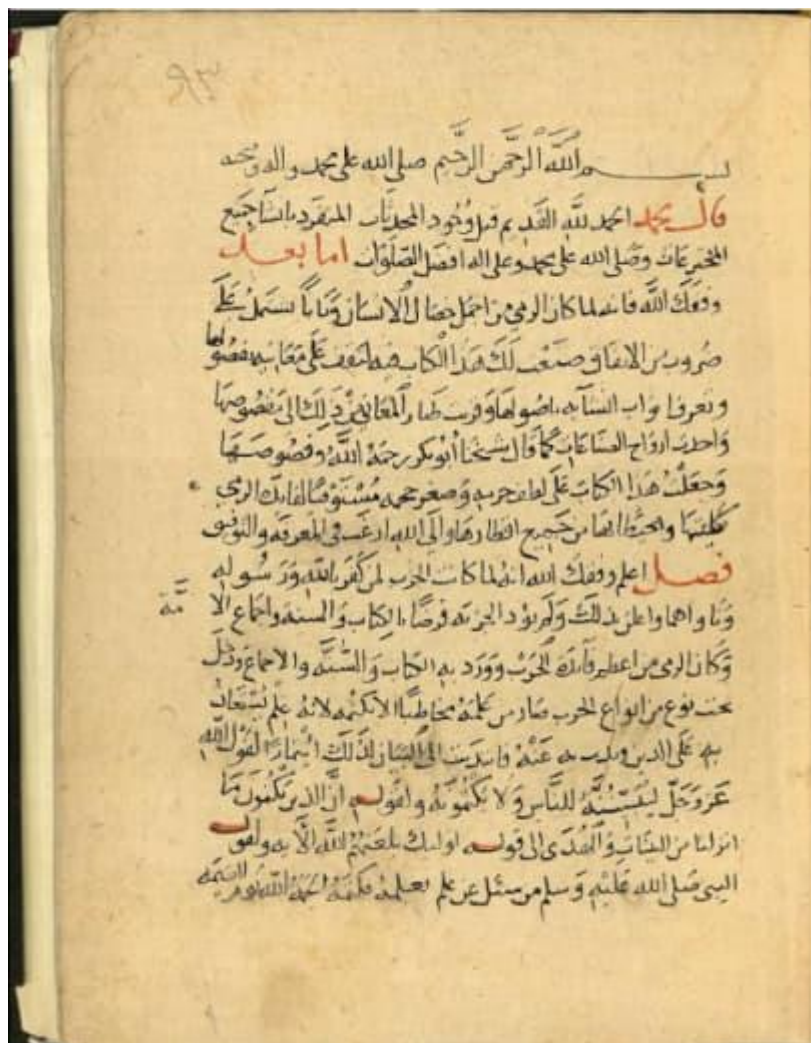 ٩٣
بسم الله الرحمن الرحيم صلى الله على محمد واله وصحبه
قال محمد الحمد لله القديم قبل وجود المحدثات المنفرد بانشا جميع
المخترعات وصلى الله على محمد وعلى اله افضل الصلوات اما بعد
وفقك الله فانه لما كان الرمي من اجمل خصال الانسان وبابا يشتمل على
ضروب من الاتفاق صنعت لك هذا الكتاب فيه لتقف على معانيه بفصولها
وتعرف باصولها المعاني ذلك الى
كما قال شيخنا ابو بكر رحمه الله
وجعلت هذا الكتاب على لطافة جرمه وصغر حجمه
من جميع اقطارها والى الله ارغب في المعرفة والتوفيق
فصل اعلم وفقك الله انه لما كانت الحرب لمن كفر بالله ورسوله
بذلك ولم يود الجزية فرضا بالكتاب والسنة واجماع الا
مة
وكان الرمي من اعظم فائدة الحرب وورد به الكتاب والسنه والاجماع ودخل
تحت نوع من انواع الحرب صار من علمه مخاطبا الا يكتمه لانه علم يستعان
به على الدين ويذب به عنه الى البيان لذلك ايتمارا لقول الله
عز وجل ليبيننه للناس ولا يكتمونه ولقوله ان الذين يكتمون ما
انزلنا من البينات والهدى الى قوله اوليك يلعنهم الله الاية ولقول
النبي صلى الله عليه وسلم من سئل عن علم يعلمه فكتمه الجمه الله يوم القيمه